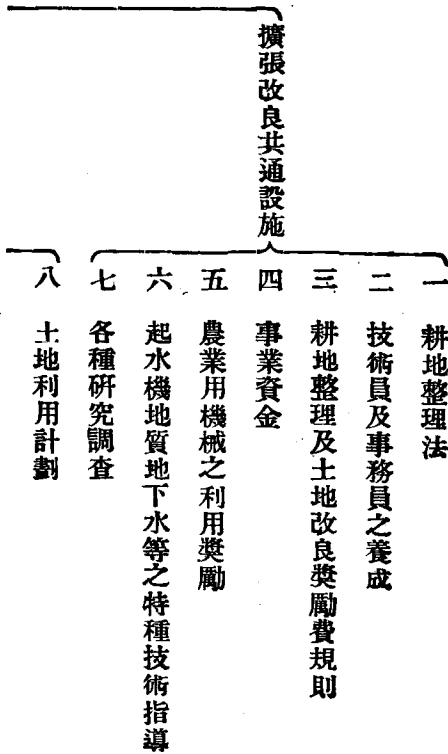 擴張改良共通設施
一　耕地整理法
二　技術員及事務員之養成
三　耕地整理及土地改良獎勵費規則
四　事業資金
五　農業用機械之利用獎勵
六　起水機地質地下水等之特種技術指導
七　各種硏究調查
八　土地利用計劃